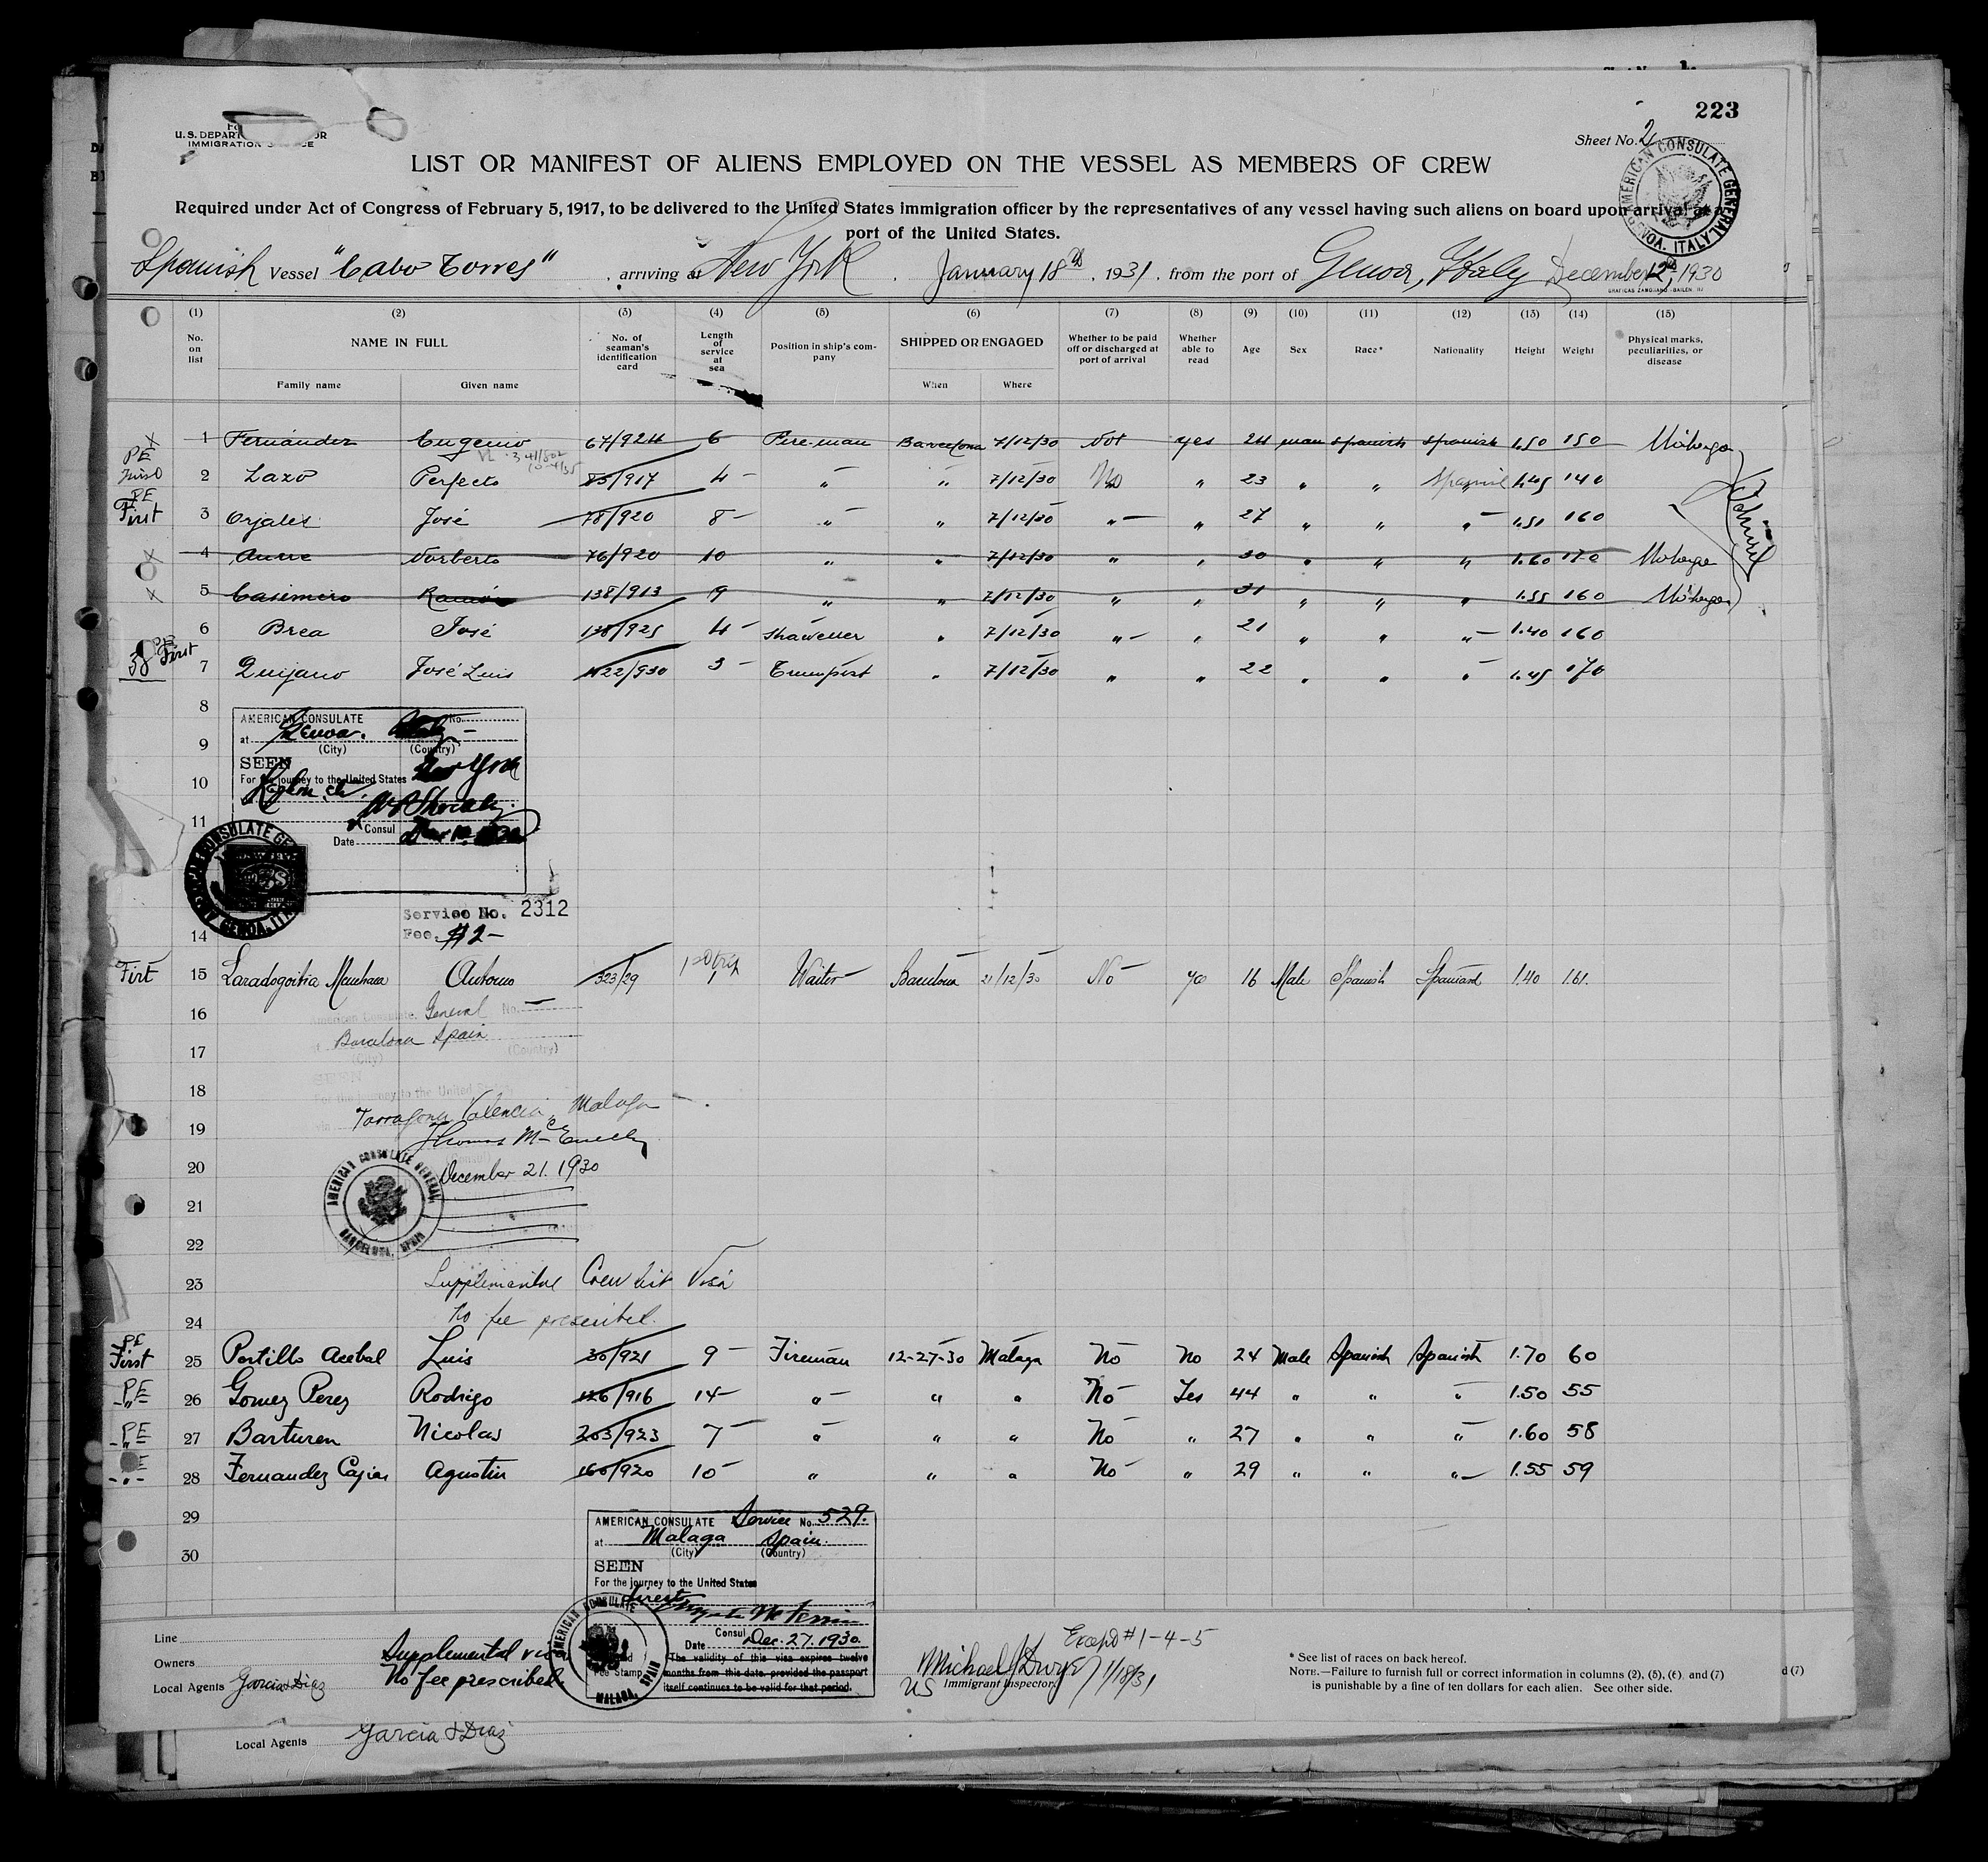 223
U. S. DEPART OR
IMMIGRATION CE
Sheet No. 2
LIST OR MANIFEST OF ALIENS EMPLOYED ON THE VESSEL AS MEMBERS OF CREW
AMERICAN CONSULATE GENERAL GENOA, ITALY
Required under Act of Congress of February 5, 1917, to be delivered to the United States immigration officer by the representatives of any vessel having such aliens on board upon arrival at a
port of the United States.
Spanish Vessel "Cabo Torres", arriving at New York, January 18th, 1931, from the port of Genova, Italy December 12, 1930
(1) (2) (3) (4) (5) (6) (7) (8) (9) (10) (11) (12) (13) (14) (15)
No. on list NAME IN FULL No. of seaman's identification card Length of service at sea Position in ship's company SHIPPED OR ENGAGED Whether to be paid off or discharged at port of arrival Whether able to read Age Sex Race* Nationality Height Weight Physical marks, peculiarities, or disease
Family name Given name When Where
1 Fernández Eugenio 67/924 6 Fire-man Barcelona 7/12/30 Not yes 24 man spanish spanish 1.50 150
PE First 2 Lazo Perfecto 85/917 4 " " 7/12/30 No " 23 " " 1.45 140
PE First 3 Orjales José 78/920 8 " " 7/12/30 " " 27 " " " 1.51 160
4 Norberto 76/920 10 " " 7/12/30 " " 30 " " " 1.60 170
5 Casimiro Ramón 138/913 9 " " 7/12/30 " " 31 " " " 1.55 160
6 Brea José 138/925 4 " 7/12/30 " " 21 " " " 1.40 160
First 7 Quijano José Luis 1122/930 3 " 7/12/30 " " 22 " " " 1.45 170
8
9
10
11
AMERICAN CONSULATE No.
at Genoa. Italy
(City) (Country)
SEEN
For the journey to the United States New York
Consul
Date
Service No. 2312
Fee. $2-
14
First 15 Antonio 323/29 1st trip Waiter Barcelona 21/12/30 No yes 16 Male Spanish Spaniard 1.40 1.61.
16 American Consulate General No.
17 Barcelona Spain
(City) (Country)
SEEN
18 For the journey to the United States
Tarragona, Valencia, Malaga
19
20 December 21. 1930
AMERICAN CONSULATE GENERAL BARCELONA, SPAIN
21
22
23 Supplemental Crew list Visa
24 No fee prescribed.
PE First 25 Portillo Acebal Luis 30/921 9 Fireman 12-27-30 Malaga No No 24 Male Spanish Spanish 1.70 60
PE " 26 Gomez Perez Rodrigo 126/916 14 " " " No Yes 44 " " " 1.50 55
PE " 27 Barturen Nicolas 203/923 7 " " " No " 27 " " " 1.60 58
" 28 Fernandez Agustin 160/920 10 " " " No " 29 " " " 1.55 59
29
30
AMERICAN CONSULATE Service No. 529.
at Malaga Spain.
(City) (Country)
SEEN
For the journey to the United States
direct
Consul
Date Dec. 27. 1930.
The validity of this visa expires twelve
months from this date, provided the passport
itself continues to be valid for that period.
AMERICAN CONSULATE MALAGA, SPAIN
Fee Stamp
Line
Owners
Local Agents Garcia & Diaz
Supplemental visa
No fee prescribed.
Except # 1-4-5
Michael J Dwyer 1/18/31
US Immigrant Inspector.
* See list of races on back hereof.
NOTE.—Failure to furnish full or correct information in columns (2), (5), (6), and (7)
is punishable by a fine of ten dollars for each alien. See other side.
d (7)
Local Agents Garcia & Diaz